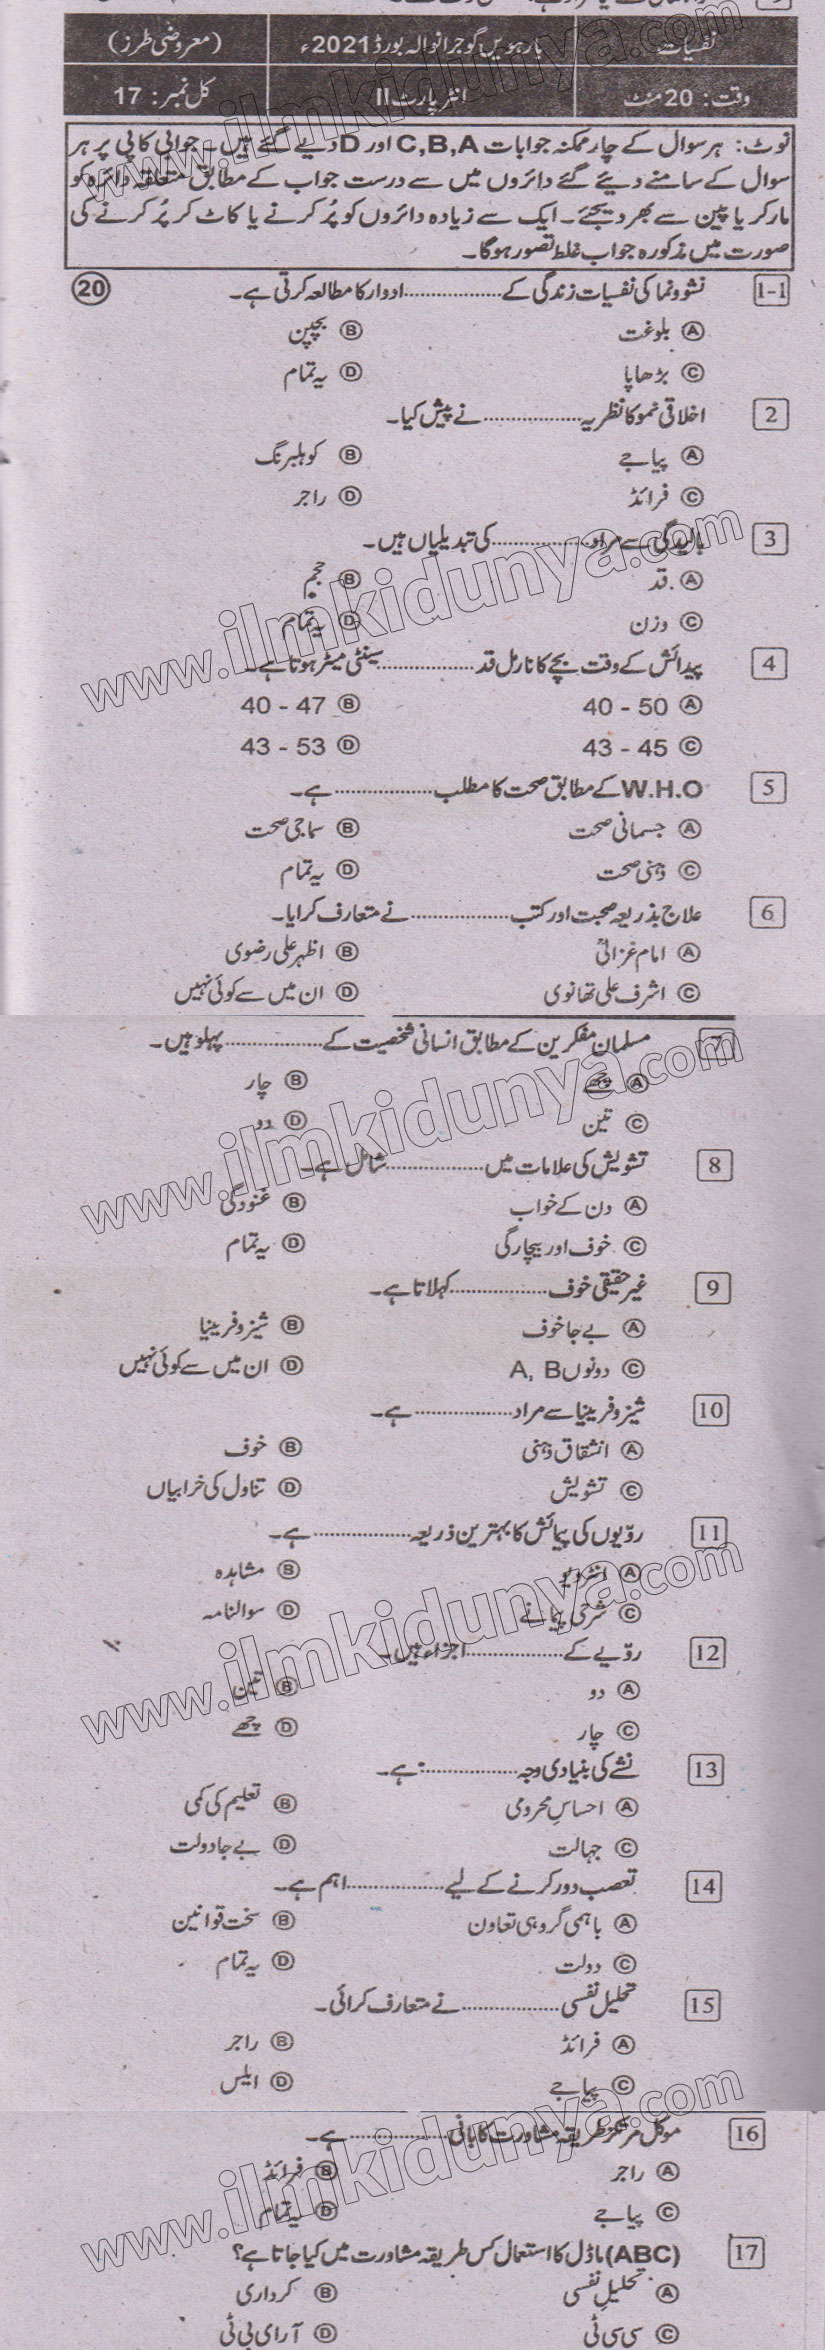 نفسیات بارہویں گوجرانوالہ بورڈ 2021ء (معروضی طرز)
وقت: 20 منٹ انٹر پارٹ II کل نمبر: 17
نوٹ: ہر سوال کے چار ممکنہ جوابات C,B,A اور D دیے گئے ہیں۔ جوابی کاپی پر ہر
سوال کے سامنے دیئے گئے دائروں میں سے درست جواب کے مطابق متعلقہ دائرہ کو
مارکر یا پین سے بھر دیجئے۔ ایک سے زیادہ دائروں کو پُر کرنے یا کاٹ کر پُر کرنے کی
صورت میں مذکورہ جواب غلط تصور ہوگا۔
1-1 نشوونما کی نفسیات زندگی کے ................. ادوار کا مطالعہ کرتی ہے۔ 20
A بلوغت B بچپن
C بڑھاپا D یہ تمام
2 اخلاقی نمو کا نظریہ ................. نے پیش کیا۔
A پیاجے B کوہلبرنگ
C فرائڈ D راجر
3 بالیدگی سے مراد ................. کی تبدیلیاں ہیں۔
A قد B حجم
C وزن D یہ تمام
4 پیدائش کے وقت بچے کا نارمل قد ................. سینٹی میٹر ہوتا ہے۔
A 40 - 50 B 40 - 47
C 43 - 45 D 43 - 53
5 W.H.O کے مطابق صحت کا مطلب ................. ہے۔
A جسمانی صحت B سماجی صحت
C ذہنی صحت D یہ تمام
6 علاج بذریعہ صحبت اور کتب ................. نے متعارف کرایا۔
A امام غزالیؒ B اظہر علی رضوی
C اشرف علی تھانوی D ان میں سے کوئی نہیں
7 مسلمان مفکرین کے مطابق انسانی شخصیت کے ................. پہلو ہیں۔
A چھے B چار
C تین D دو
8 تشویش کی علامات میں ................. شامل ہے۔
A دن کے خواب B غنودگی
C خوف اور بیچارگی D یہ تمام
9 غیر حقیقی خوف ................. کہلاتا ہے۔
A بے جا خوف B شیزوفرینیا
C دونوں A, B D ان میں سے کوئی نہیں
10 شیزوفرینیا سے مراد ................. ہے۔
A انشقاق ذہنی B خوف
C تشویش D تناول کی خرابیاں
11 رویّوں کی پیمائش کا بہترین ذریعہ ................. ہے۔
A انٹرویو B مشاہدہ
C شرحی پیمانے D سوالنامہ
12 رویّے کے ................. اجزاء ہیں۔
A دو B تین
C چار D چھے
13 نشے کی بنیادی وجہ ................. ہے۔
A احساسِ محرومی B تعلیم کی کمی
C جہالت D بے جا دولت
14 تعصب دور کرنے کے لیے ................. اہم ہے۔
A باہمی گروہی تعاون B سخت قوانین
C دولت D یہ تمام
15 تحلیل نفسی ................. نے متعارف کرائی۔
A فرائڈ B راجر
C پیاجے D ایلس
16 موکل مرتکز طریقہ مشاورت کا بانی ................. ہے۔
A راجر B فرائڈ
C پیاجے D یہ تمام
17 (ABC) ماڈل کا استعمال کس طریقہ مشاورت میں کیا جاتا ہے؟
A تحلیلِ نفسی B کرداری
C سی سی ٹی D آر ای بی ٹی
www.ilmkidunya.com
www.ilmkidunya.com
www.ilmkidunya.com
www.ilmkidunya.com
www.ilmkidunya.com